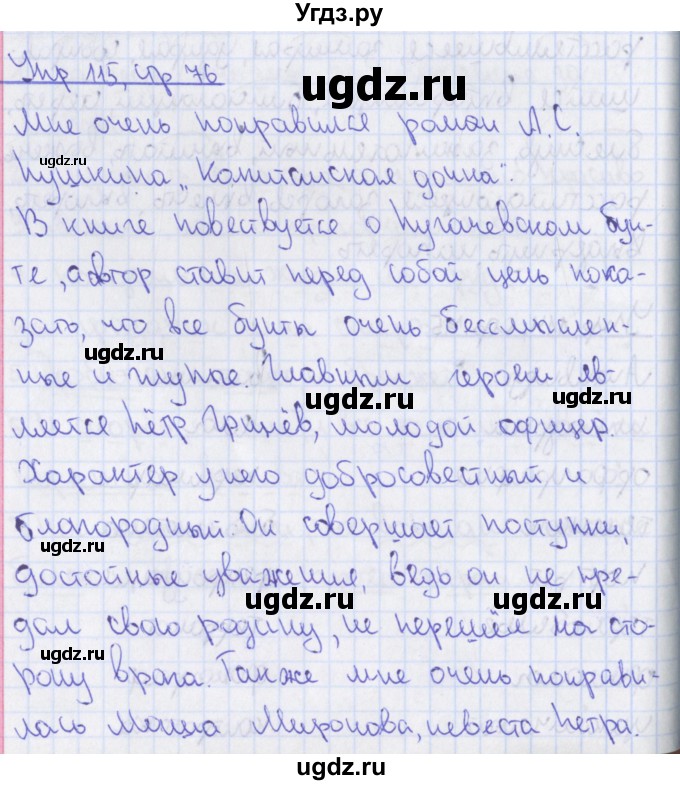 Угдз.ру
Упр 115, стр 76
ugdz.ru
Мне очень понравился роман А.С.
ugdz.ru
Пушкина „Капитанская дочка".
В книге повествуется о Пугачевском бун-
те, автор ставит перед собой цель пока-
зать, что все бунты очень бессмыслен-
ugdz.ru
ные и глупые. Главным героем яв-
ugdz.ru
ugdz.ru
ляется Пётр Гринёв, молодой офицер.
Характер у него добросовестный и
благородный. Он совершает поступки,
ugdz.ru
ugdz.ru
достойные уважения, ведь он не пре-
ugdz.ru
ugdz.ru
дал свою родину, не перешёл на сто-
ugdz.ru
рону врага. Также мне очень понрави-
лась Маша Миронова, невеста Петра.
ugdz.ru